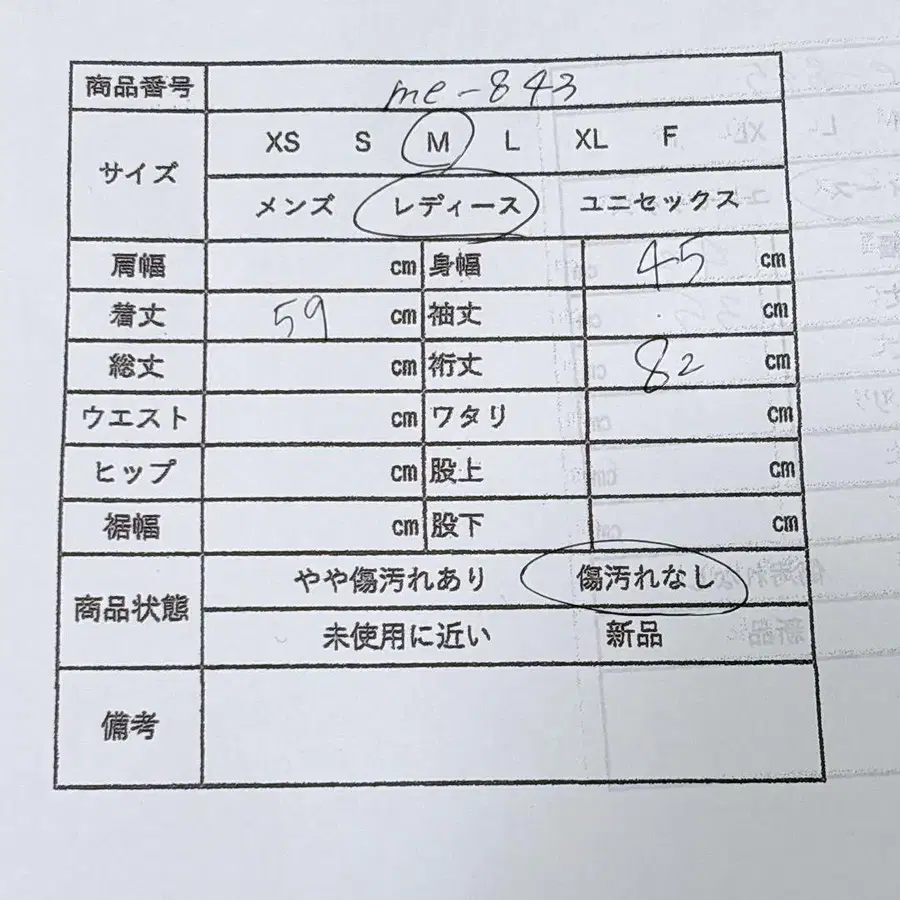 商品番号 me-843
サイズ XS S M L XL F
メンズ レディース ユニセックス
肩幅 cm 身幅 45 cm
着丈 59 cm 袖丈 cm
総丈 cm 裄丈 82 cm
ウエスト cm ワタリ cm
ヒップ cm 股上 cm
裾幅 cm 股下 cm
商品状態 やや傷汚れあり 傷汚れなし
未使用に近い 新品
備考